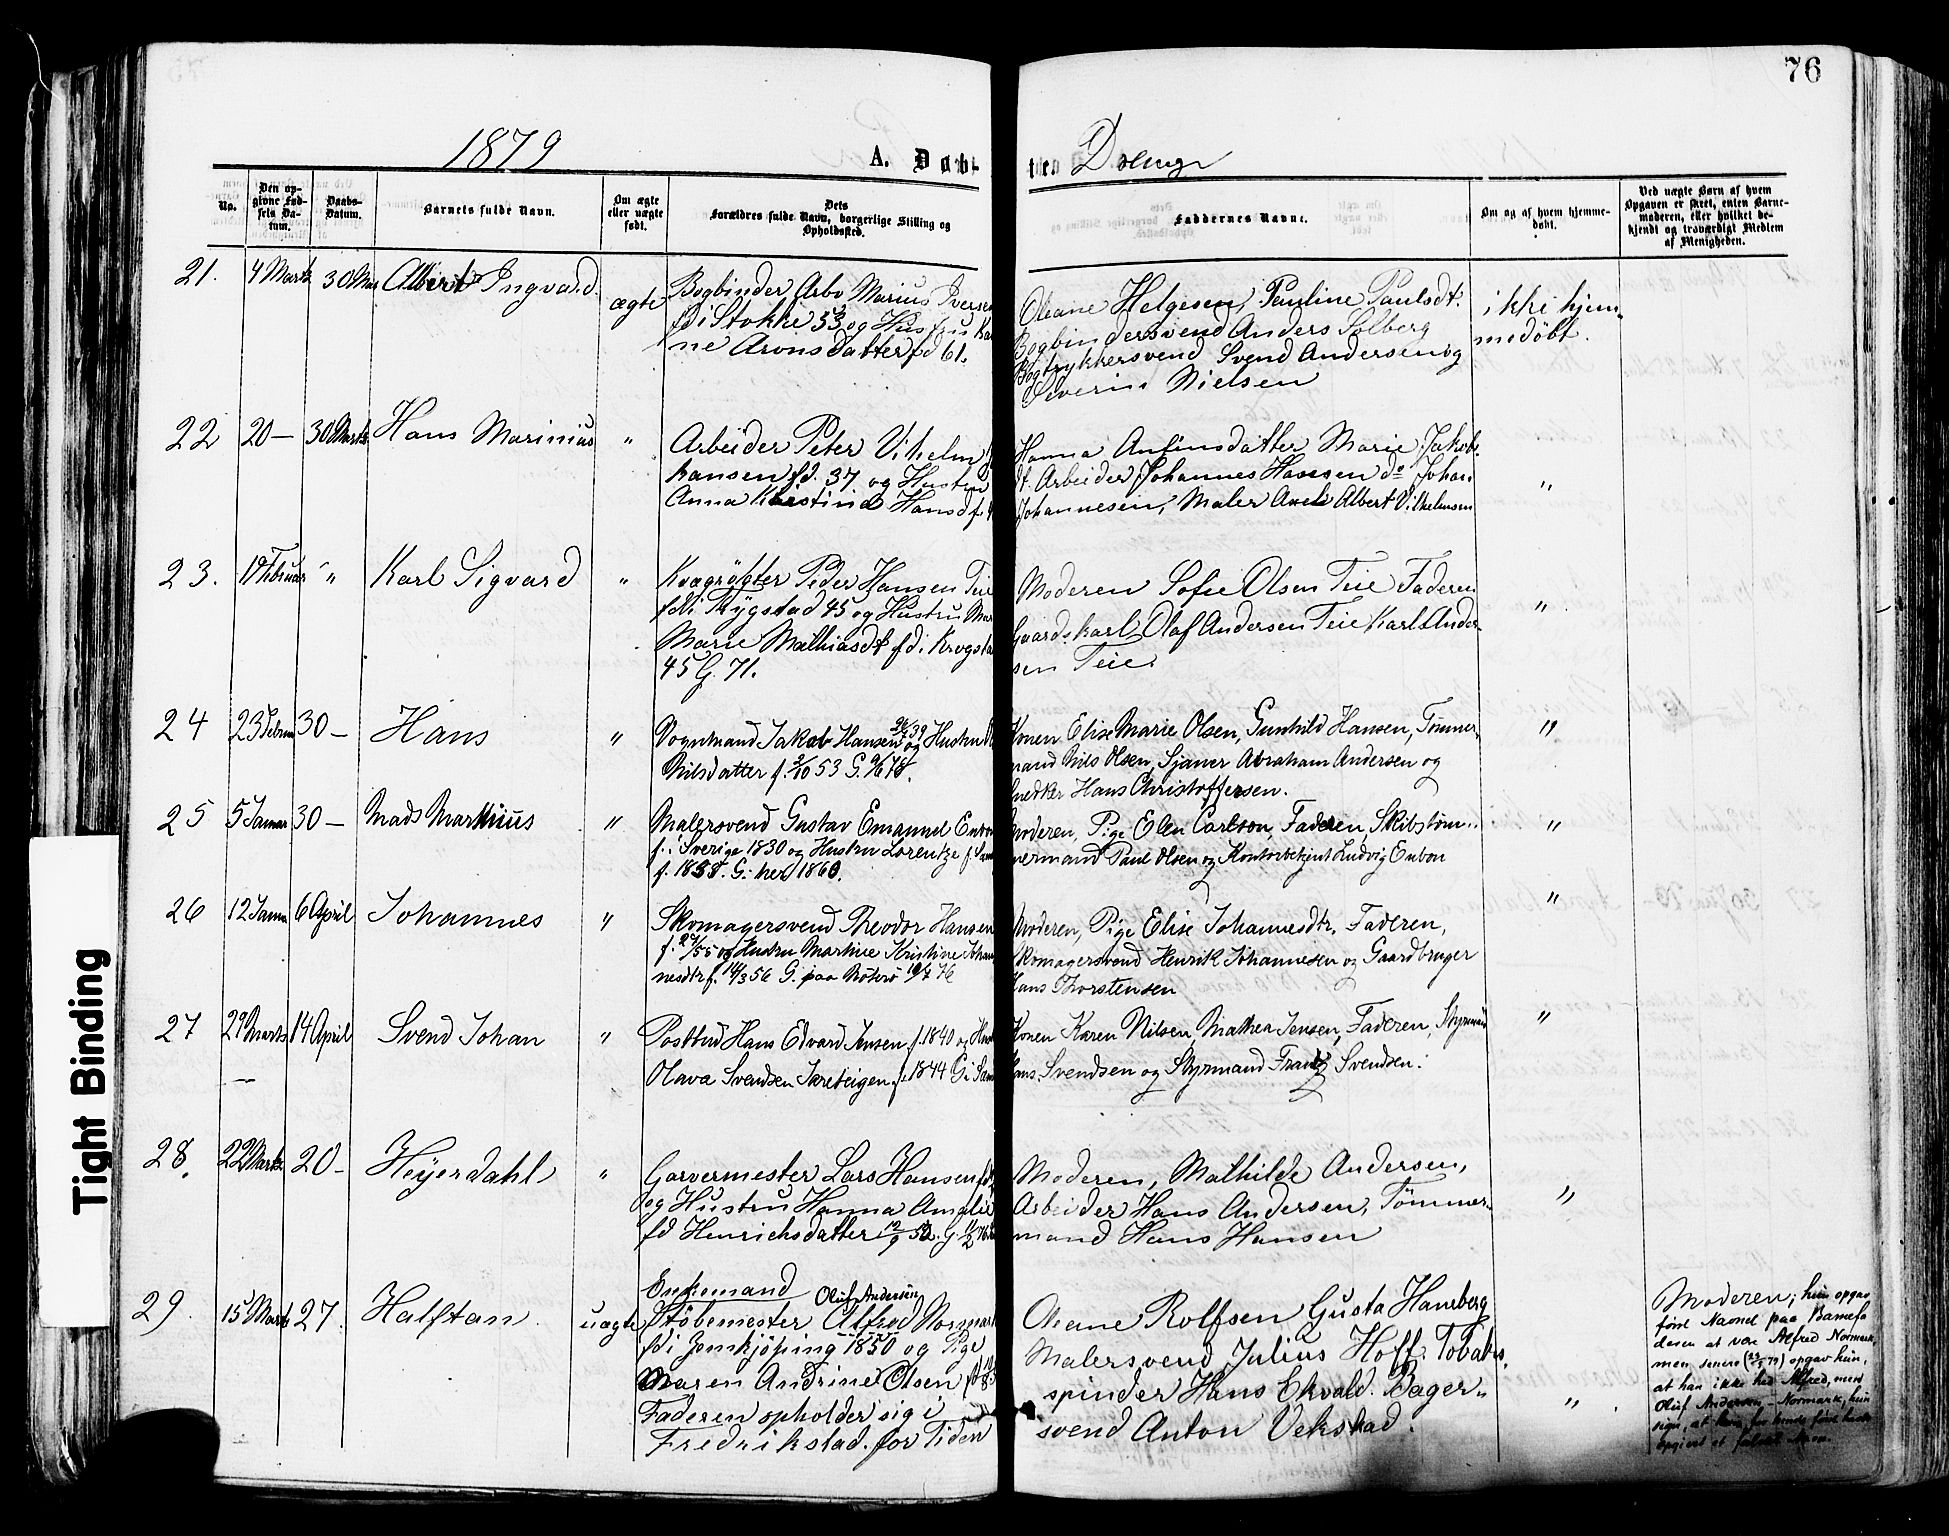 76
1879
A. Døb-
te
Drenge
No.
Den op-
givne Fød-
sels Da-
tum.
Daabs-
Datum.
Barnets fulde Navn.
Om ægte
eller uægte
født.
Dets
Forældres fulde Navn, borgerlige Stilling og
Opholdssted.
Faddernes Navne.
Om og af hvem hjemme-
døbt.
Ved uægte Børn af hvem
Opgaven er skeet, enten Barne-
moderen, eller hvilket be-
kjendt og troværdigt Medlem
af Menigheden.
21. 4 Marts 30 Mar Albert Ingvard ægte
Bogbinder Arbo Marius Iversen
fd i Stokke 53 og Hustru
ne Aronsdatter fd 61.
Oleane Helgesen, Pauline Paulsdt.
Bogbindersvend Anders Solberg
Bogtrykkersvend Svend Andersen og
Severin Nielsen
ikke hjem-
medöbt.
22 20 — 30 Marts Hans Marinius "
Arbeider Peter Vilhelm
hansen fd. 37 og Hustru
Anna Kristine Hansd f.
Hanna Antinsdatter Marie Jakob
dt. Arbeider Johannes Hansen do Johan
Johannesen, Maler Axel Albert Vilhelmsen
"
23. 19 Februar " Karl Sigvard "
Kvægrögter Peder Hansen Teie
fd i Rygstad 45 og Hustru Mar
Marie Mathiasdt fd i Krogsta
45 G. 71.
Moderen Sofie Olsen Teie Faderen
Gaardskarl Olaf Andersen Teie Karl Ander-
sen Teie.
"
24 23 Febru 30 — Hans "
Vognmand Jakob Hansen 39 og Hustru
Nilsdatter f. 2/10 53 G.
Konen Elise Marie Olsen, Gunhild Hansen, Tømmer-
mand Nils Olsen, Sjauer Abraham Andersen og
Snedker Hans Christoffersen.
"
25 5 Januar 30 — Mads Marthius "
Malersvend Gustav Emanuel Enbom
f. i Sverige 1830 og Hustru Lorentze f.
f. 1838. G. her 1860.
Moderen, Pige Elen Carlson, Faderen, Skibstøm-
mermand Paul Olsen og Kontorbetjent Ludvig Enbon
"
26 12 Janua 6 April Johannes "
Skomagersvend Theodor Hansen
f. 55 og Hustru Martine Kristine Johan
nesdtr f. 14/3 56 G. paa Nøterø 76
Moderen, Pige Elise Johannesdtr. Faderen,
Skomagersvend Henrik Johannesen og Gaardbruger
Hans Thorstensen
27 29 Marts 14 April Svend Johan "
Postbud Hans Edvard Jensen f. 1840 og Hust
Olava Svendsen f. 1844 G. i Sam
Konen Karen Nilsen, Mathea Jensen, Faderen, Styrmand
Hans Svendsen og Styrmand Frantz Svendsen.
"
28. 22 Marts 20 — Heyerdahl "
Garvermester Lars Hansen fd
og Hustru Hanna Amalie
fd Henrichsdatter 12/9 52. G.
Moderen, Mathilde Andersen,
Arbeider Hans Andersen, Tömmer-
mand Hans Hansen
"
29. 15 Marts 27. Halftan uægte
Enkemand Oluf Andersen
Støbemester Alfred Normark
fd i Jönkjöping 1850 og Pige
Maren Andrine Olsen fd
Faderen opholder sig i
Fredrikstad. for Tiden
Oleane Rolfsen Gusta Haneberg
Malersvend Julius Hoff. Tobaks-
spinder Hans Ekvald. Bager-
svend Anton Vekstad.
"
Moderen; hun opgav
først Navnet paa Barnefa
deren at være Alfred Normark,
men senere opgav hun,
at han ikke hed Alfred, men
Oluf Andersen-Normark, hun
opgivet et falskt Navn.
Tight Binding